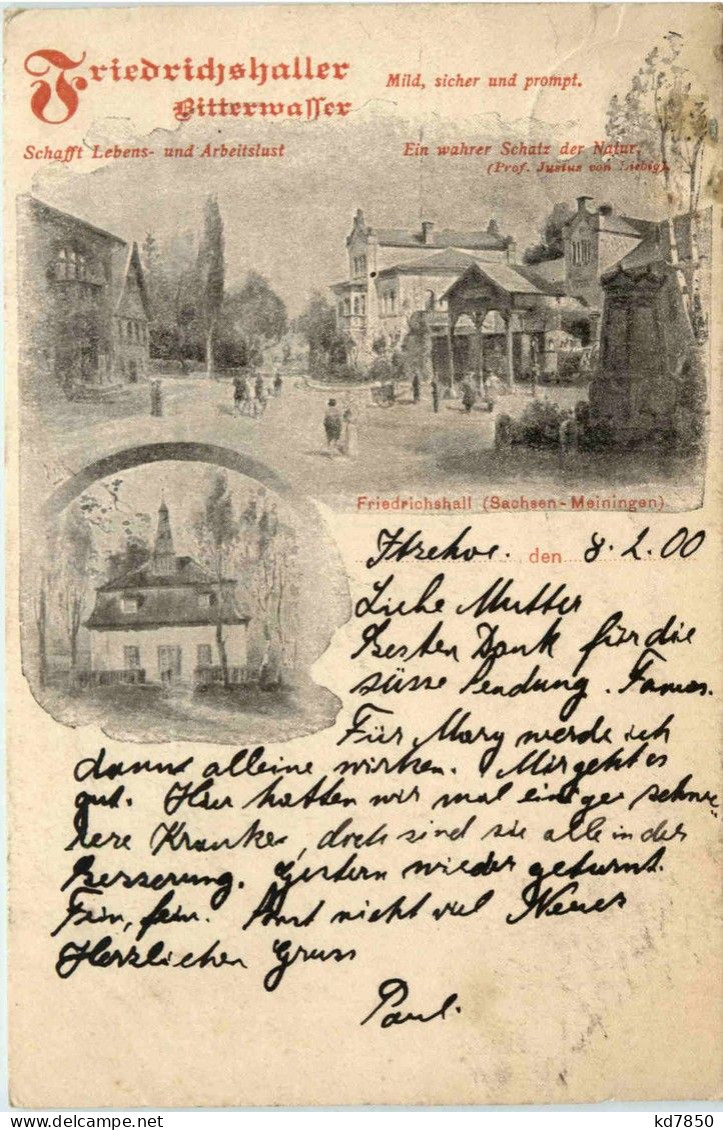 Friedrichshaller
Bitterwasser
Mild, sicher und prompt.
Schafft Lebens- und Arbeitslust
Ein wahrer Schatz der Natur.
(Prof. Justus von Liebig).
Friedrichshall (Sachsen-Meiningen)
Itzehoe. den 8.2.00
Liebe Mutter
Besten Dank für die
süsse Sendung. Famos.
Für Mary werde ich
dann alleine wirken. Mir geht es
gut. Hier hatten wir mal einige schwe-
rere Kranke, doch sind sie alle in der
Besserung. Gestern wieder geturnt.
Fein, fein. Sonst nicht viel Neues
Herzlichen Gruss
Paul.
kd7850